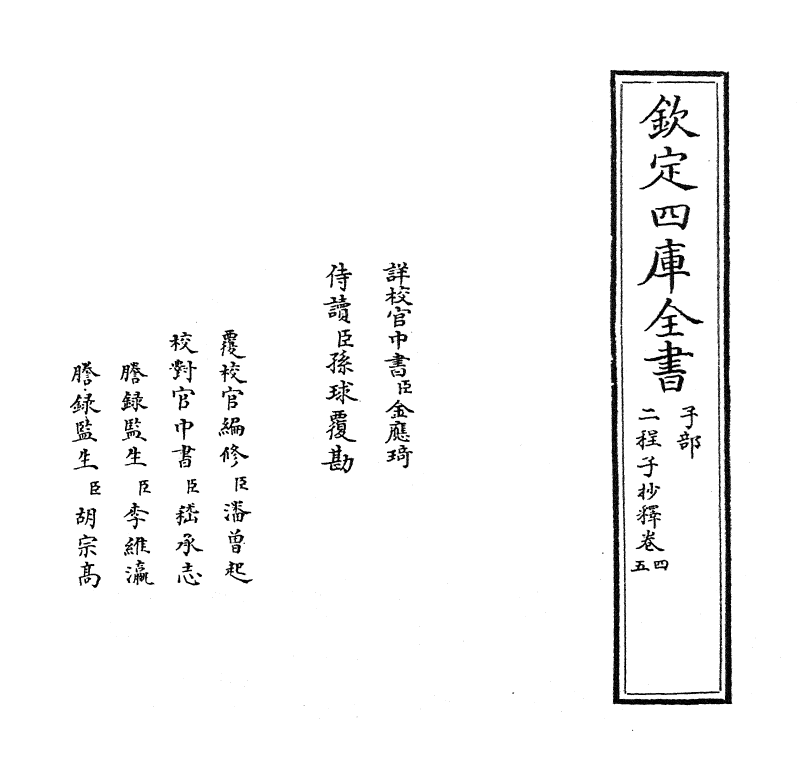 欽定四庫全書
子部
二程子抄釋卷四五
詳校官中書臣金應琦
侍讀臣孫球覆勘
覆校官編修臣潘曾起
校對官中書臣嵇承志
謄録監生臣李維瀛
謄録監生臣胡宗髙